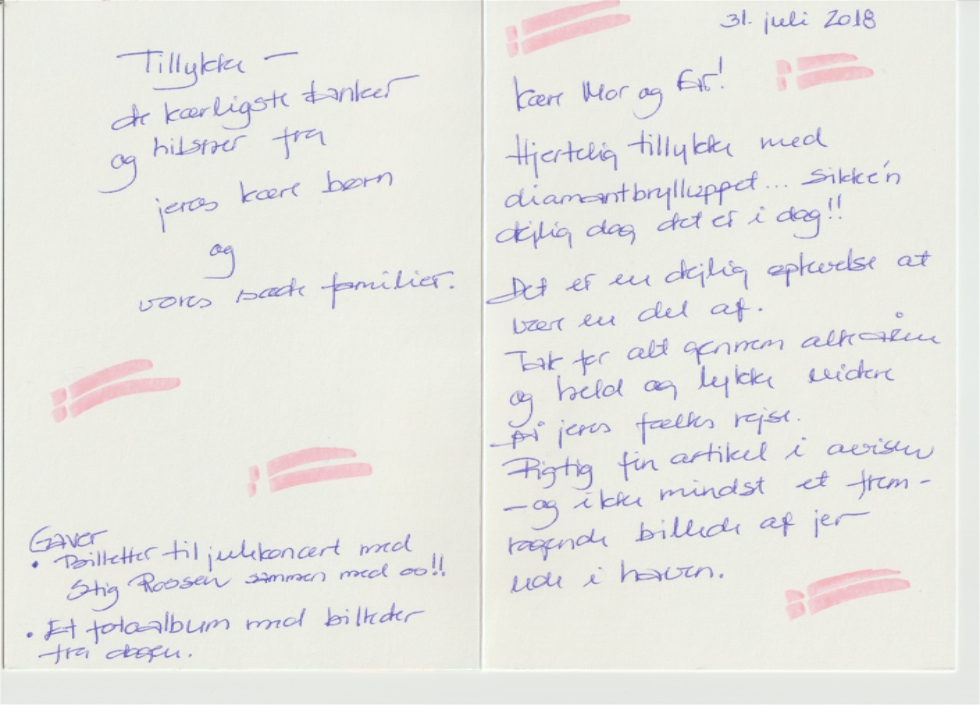 Tillykke –
de kærligste tanker
og hilsner fra
jeres kære børn
og
vores søde familier.
Gaver
• Billetter til julekoncert med
Stig Rossen sammen med os!!
• Et fotoalbum med billeder
fra dagen.
31. juli 2018
Kære Mor og Far!
Hjertelig tillykke med
diamantbrylluppet... Sikke'n
dejlig dag det er i dag!!
Det er en dejlig oplevelse at
være en del af.
Tak for alt gennem alle årene
og held og lykke videre
på jeres fælles rejse.
Rigtig fin artikel i avisen
– og ikke mindst et frem-
ragende billede af jer
ude i haven.